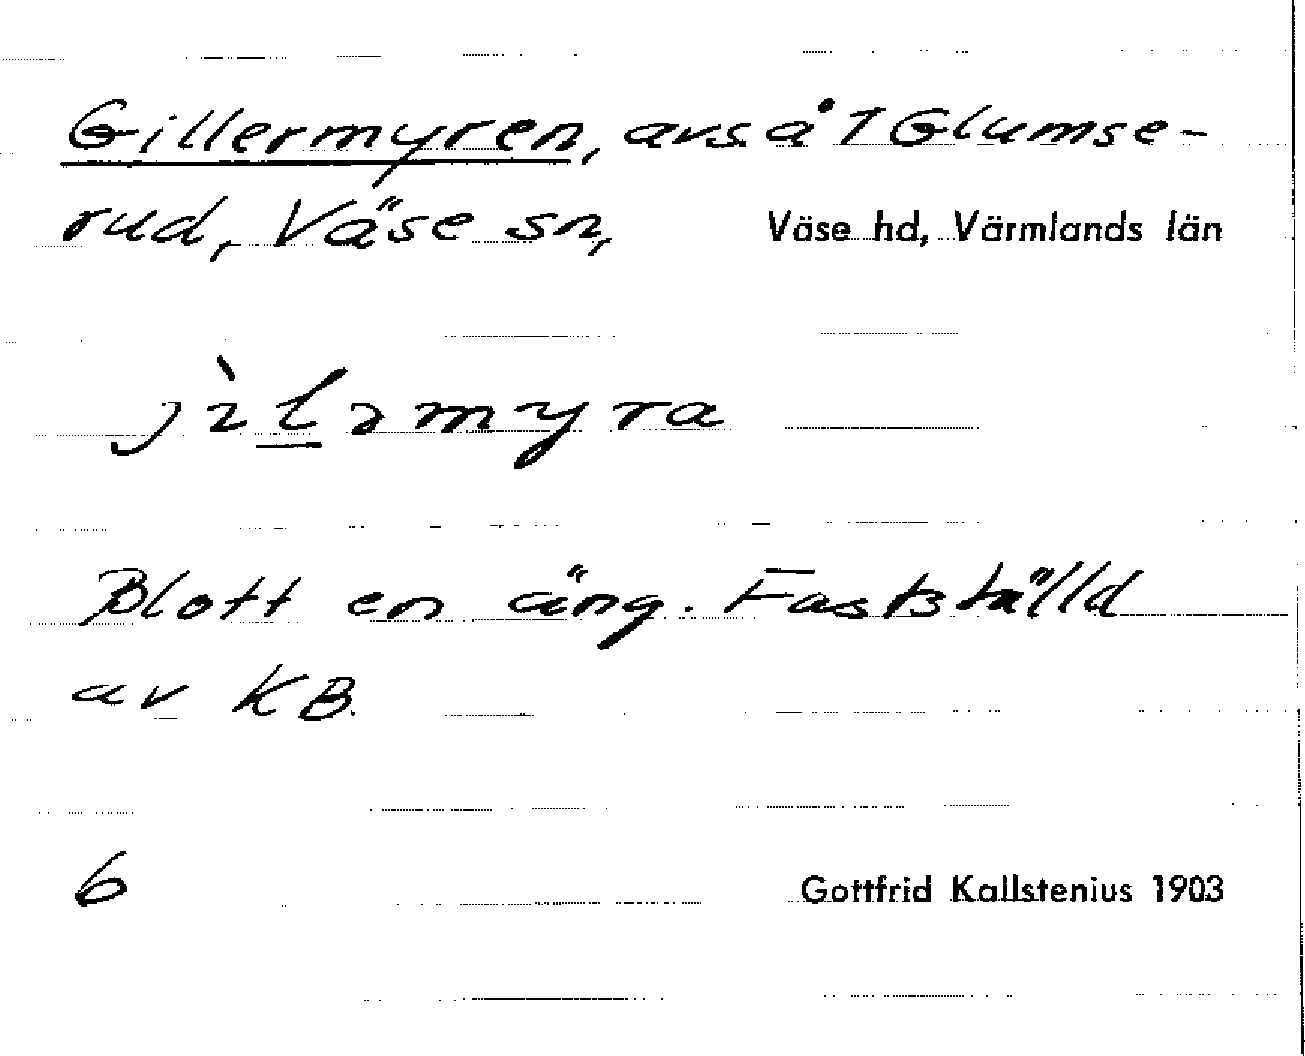 Gillermyren, avs å 1 Glumse-
rud, Väse sn, Väse hd, Värmlands län
jìlamyra
Blott en äng. Fastställd
av KB.
6 Gottfrid Kallstenius 1903